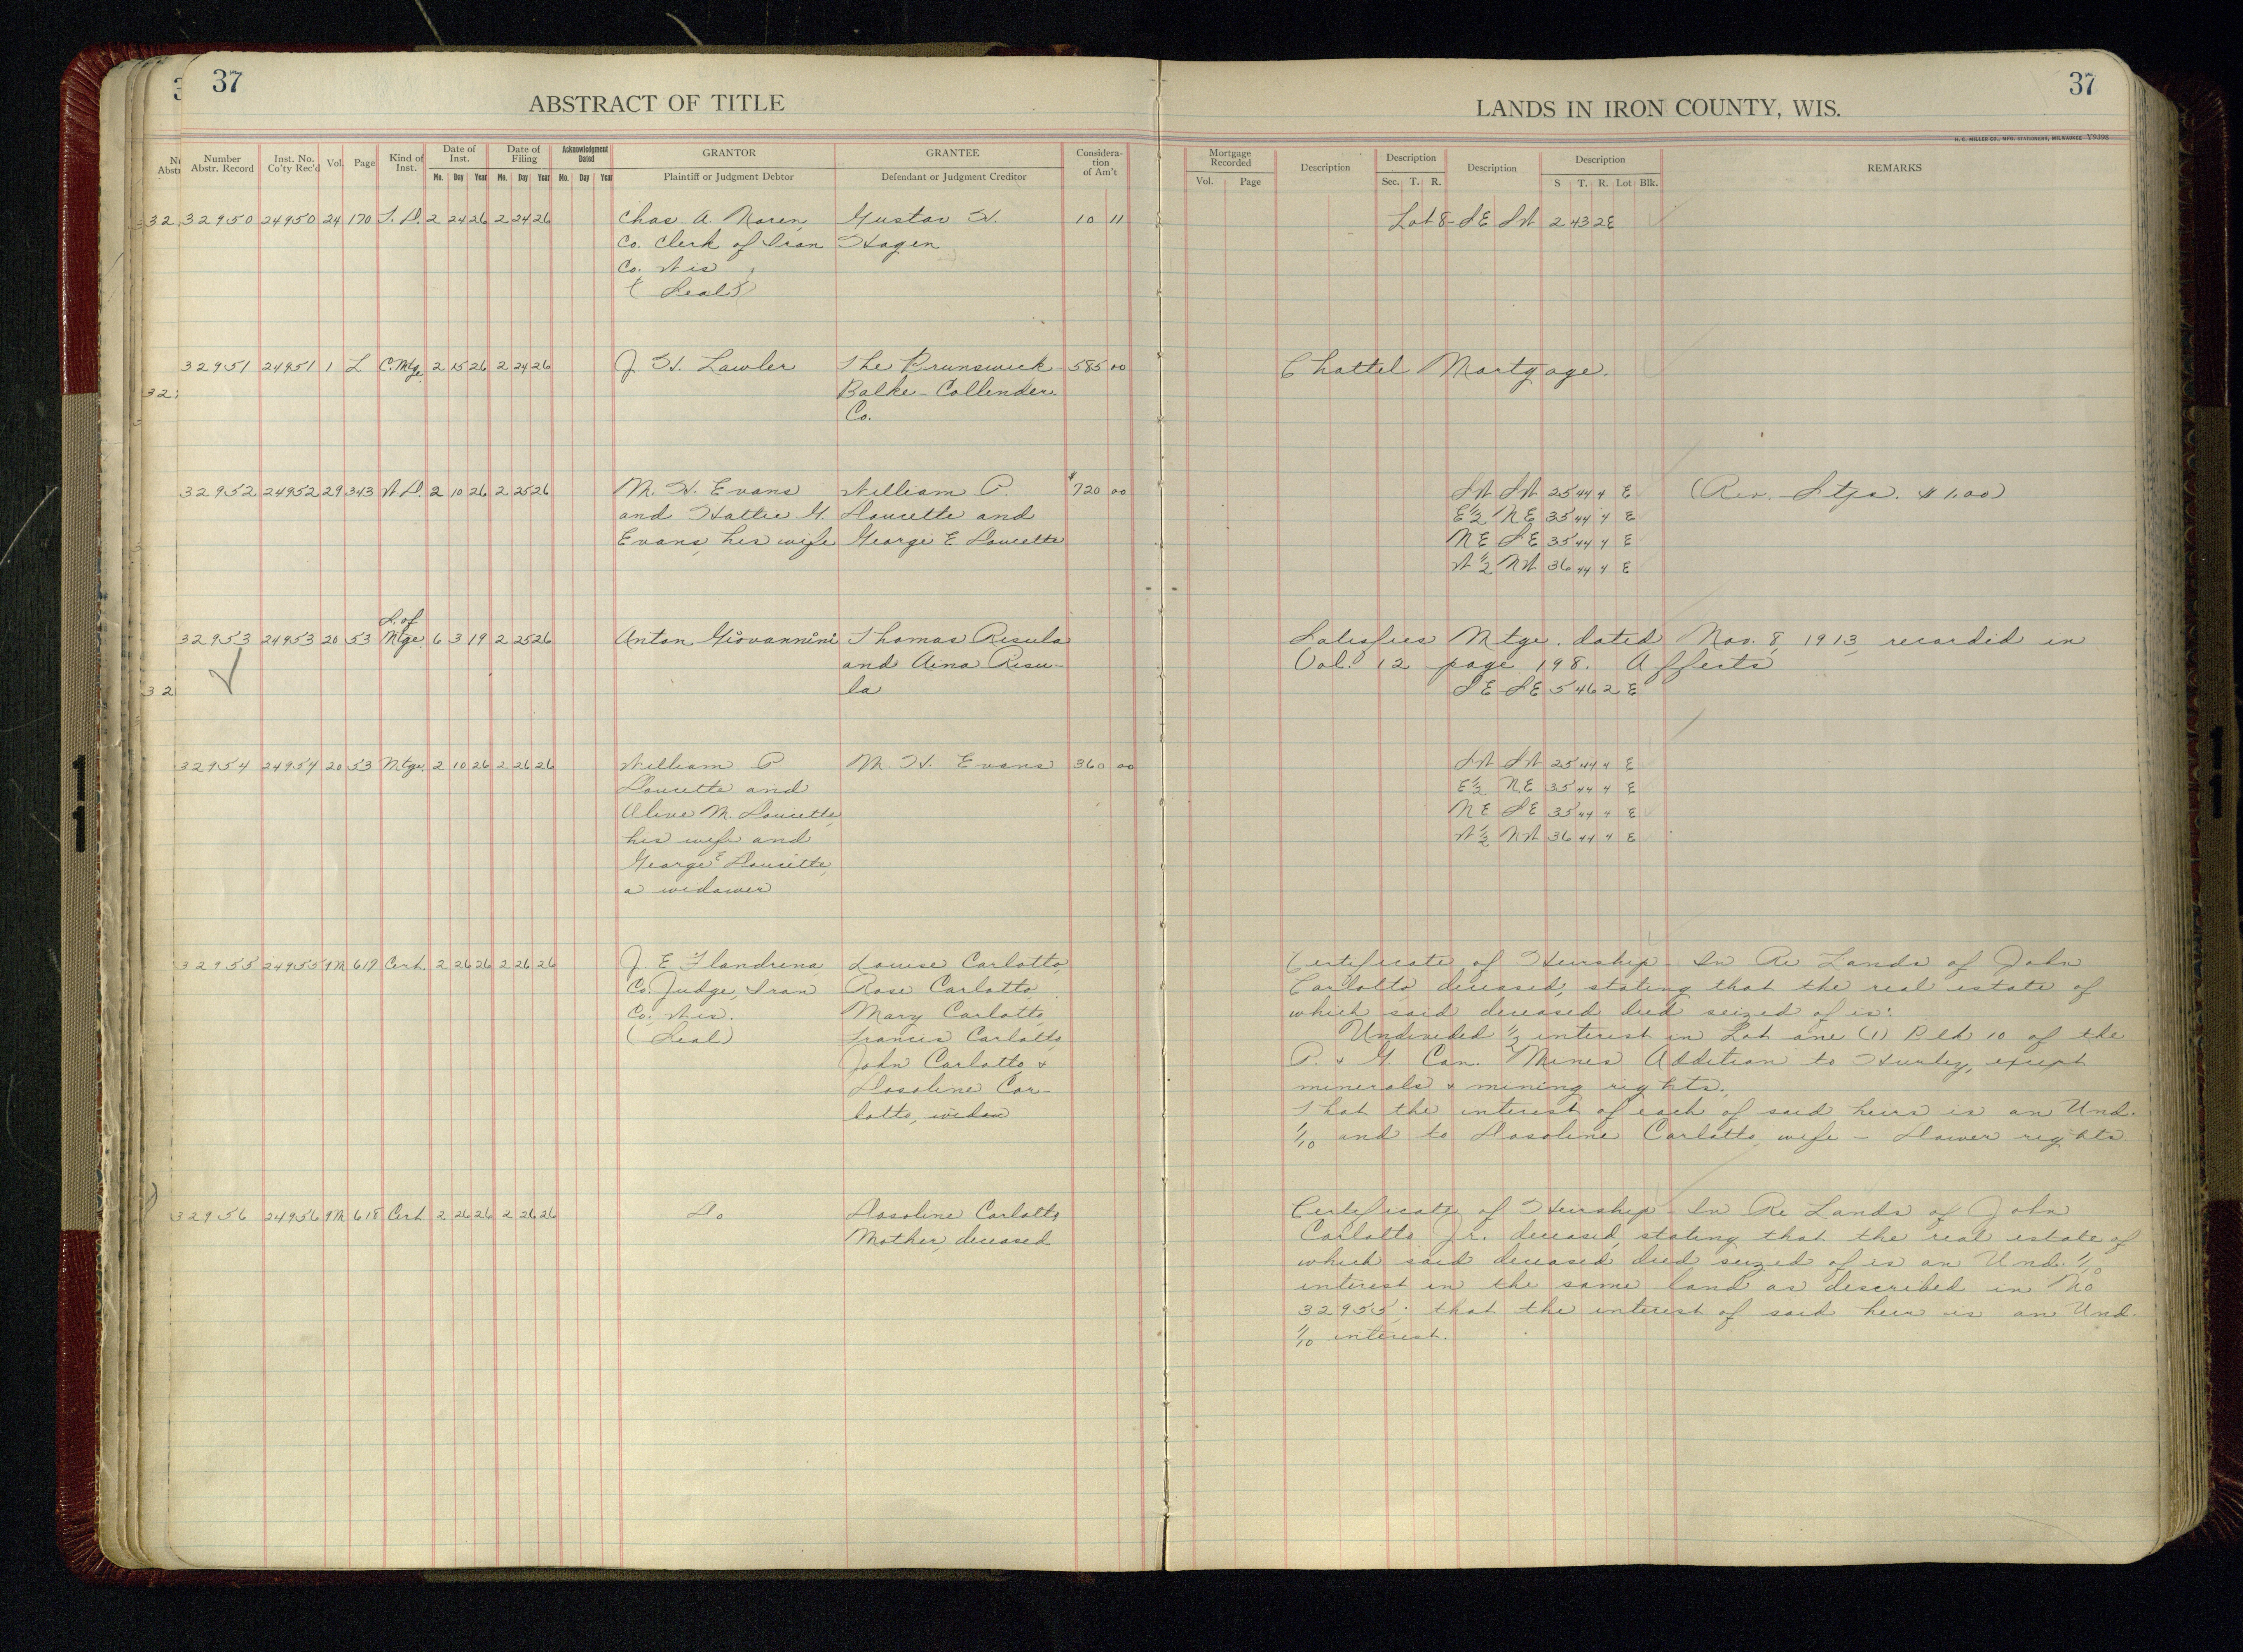 37
ABSTRACT OF TITLE
LANDS IN IRON COUNTY, WIS.
37
H. C. MILLER CO., MFG. STATIONERS, MILWAUKEE
Number Abstr. Record Inst. No. Co'ty Rec'd Vol. Page Kind of Inst. Date of Inst. Mo. Day Year Date of Filing Mo. Day Year Acknowledgment Dated Mo. Day Year GRANTOR Plaintiff or Judgment Debtor GRANTEE Defendant or Judgment Creditor Considera- tion of Am't Mortgage Recorded Vol. Page Description Description Sec. T. R. Description Description S T. R. Lot Blk. REMARKS
32950 24950 24 170 T. D. 2 24 26 2 24 26 Chas. A. Noren, Gustav H. 10 11 Lot 8 SE SW 2 43 2E
Co. Clerk of Iron Hagen
Co. Wis
(Seal)
32951 24951 1 L C. Mtge. 2 15 26 2 24 26 J. H. Lawler The Brunswick- 585 00 Chattel Mortgage.
Balke-Collender
Co.
32952 24952 29 343 W. D. 2 10 26 2 25 26 M. H. Evans William P. $720 00 SW SW 25 44 4 E (Rev. Stps. $1.00)
and Hattie G. Doucette and E½ NE 35 44 4 E
Evans, his wife George E. Doucette NE SE 35 44 4 E
W½ NW 36 44 4 E
S. of
32953 24953 20 53 Mtge. 6 3 19 2 25 26 Anton Giovannini Thomas Risula Satisfies Mtge. dated Nov. 8, 1913, recorded in
and Aina Risu- Vol. 12 page 198. Affects
la SE SE 5 46 2 E
32954 24954 20 53 Mtge. 2 10 26 2 26 26 William P. M. H. Evans 360 00 SW SW 25 44 4 E
Doucette and E½ NE 35 44 4 E
Olive M. Doucette, NE SE 35 44 4 E
his wife and W½ NW 36 44 4 E
George E Doucette,
a widower
32955 24955 9M 617 Cert. 2 26 26 2 26 26 J. E. Flandrena, Louise Carlotto, Certificate of Heirship - In Re Lands of John
Co. Judge, Iron Rose Carlotto, Carlotto, deceased, stating that the real estate of
Co. Wis. Mary Carlotto, which said deceased died seized of is:
(Seal) Francis Carlotto, Undivided ½ interest in Lot one (1) Blk 10 of the
John Carlotto & P. & G. Con. Mines Addition to Hurley, except
Dosoline Car- minerals & mining rights.
lotto, widow That the interest of each of said heirs is an Und.
1/10 and to Dosoline Carlotto, wife - Dower rights
32956 24956 9M 618 Cert 2 26 26 2 26 26 Do Dosoline Carlotto, Certificate of Heirship - In Re Lands of John
Mother, deceased Carlotto Jr. deceased, stating that the real estate of
which said deceased died seized of is an Und. 1/10
interest in the same land as described in No
32955; that the interest of said heir is an Und.
1/10 interest.